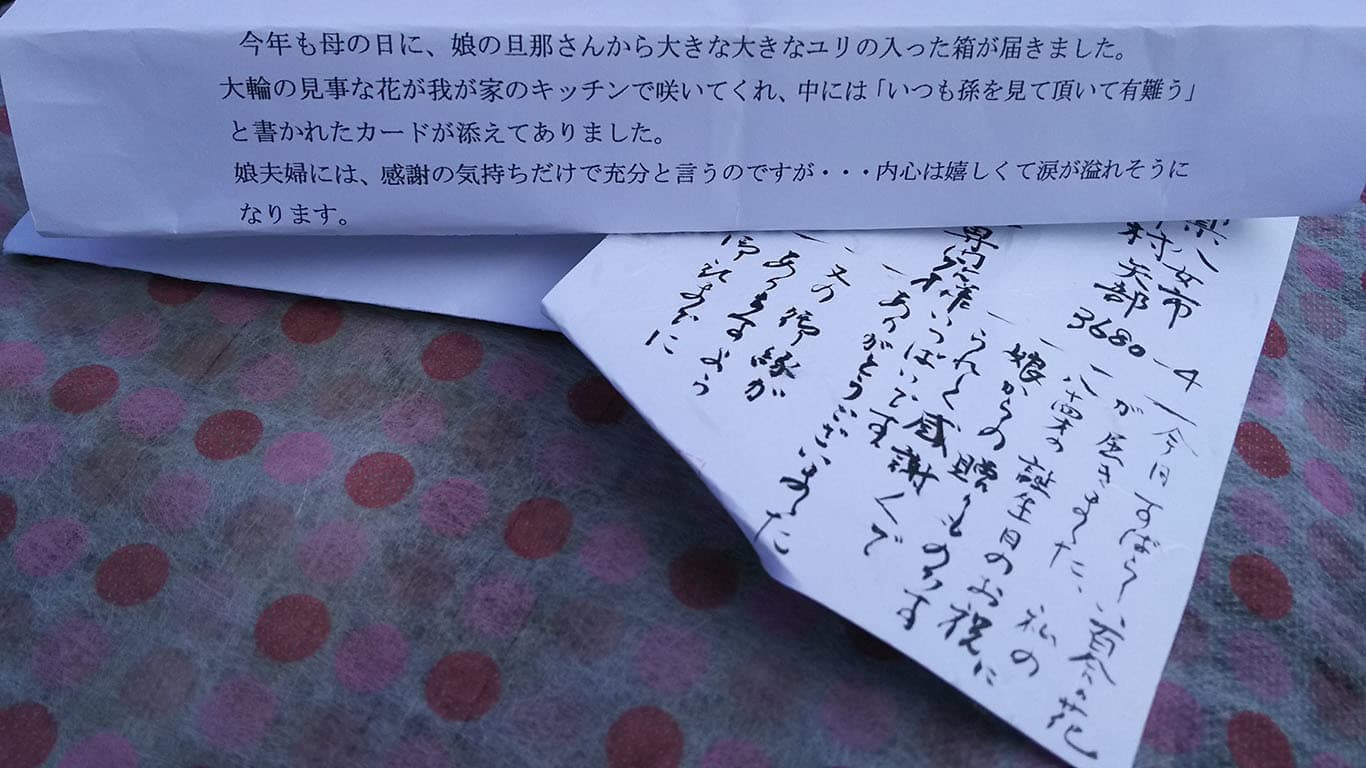 今年も母の日に、娘の旦那さんから大きな大きなユリの入った箱が届きました。
大輪の見事な花が我が家のキッチンで咲いてくれ、中には「いつも孫を見て頂いて有難う」
と書かれたカードが添えてありました。
娘夫婦には、感謝の気持ちだけで充分と言うのですが・・・内心は嬉しくて涙が溢れそうに
なります。
県八女市
村矢部
3680-4
今日すばらしい百合の花
が届きました、私の
八十四才の誕生日のお祝に
娘からの贈りものです
うれしく感謝で
いっぱいです
ありがとうございました
又の御縁が
ありますよう